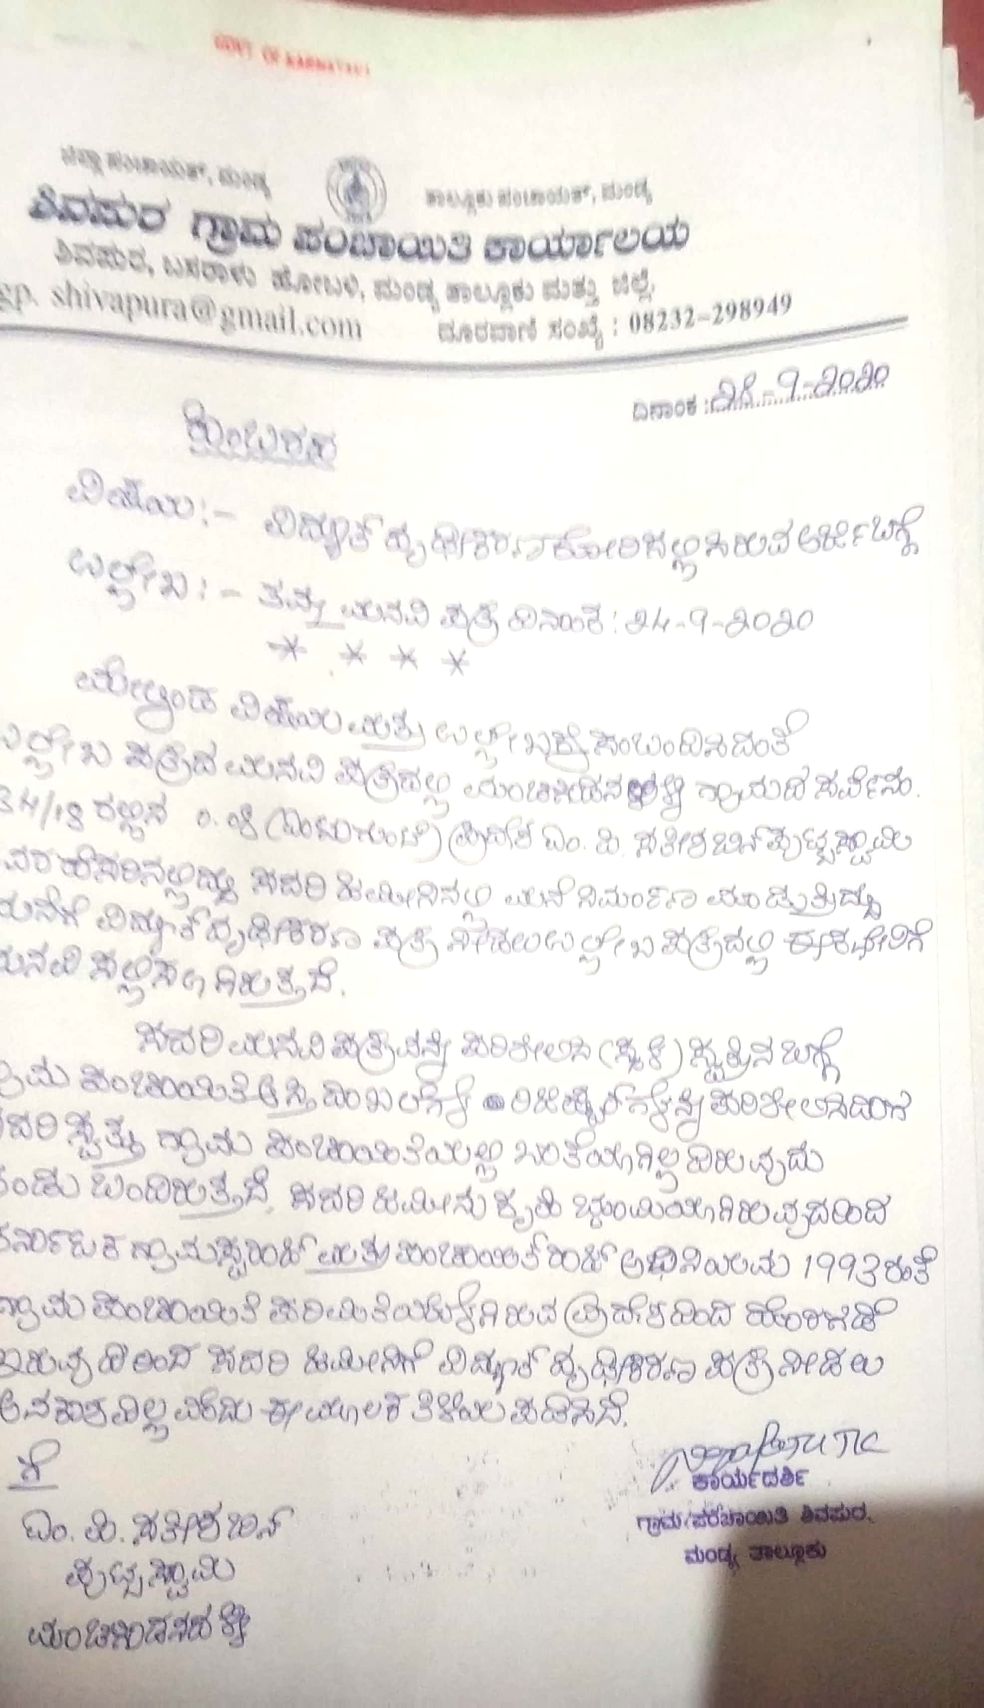 GOVT OF KARNATAKA
ಜಿಲ್ಲಾ ಪಂಚಾಯತ್, ಮಂಡ್ಯ
ತಾಲ್ಲೂಕು ಪಂಚಾಯತ್, ಮಂಡ್ಯ
ಶಿವಪುರ ಗ್ರಾಮ ಪಂಚಾಯಿತಿ ಕಾರ್ಯಾಲಯ
ಶಿವಪುರ, ಬಸರಾಳು ಹೋಬಳಿ, ಮಂಡ್ಯ ತಾಲ್ಲೂಕು ಮತ್ತು ಜಿಲ್ಲೆ.
gp. shivapura@gmail.com
ದೂರವಾಣಿ ಸಂಖ್ಯೆ : 08232-298949
ದಿನಾಂಕ : -9-2020
ವಿಷಯ:- ವಿದ್ಯುತ್ ದೃಢೀಕರಣ ಕೋರಿ ಸಲ್ಲಿಸಿರುವ ಅರ್ಜಿ ಬಗ್ಗೆ
ಉಲ್ಲೇಖ:- ತಮ್ಮ ಮನವಿ ಪತ್ರ ದಿನಾಂಕ: 24-9-2020
* * * *
ಮೇಲ್ಕಂಡ ವಿಷಯ ಮತ್ತು ಉಲ್ಲೇಖಕ್ಕೆ ಸಂಬಂದಿಸಿದಂತೆ
ಉಲ್ಲೇಖ ಪತ್ರದ ಮನವಿ ಪತ್ರದಲ್ಲಿ ಗ್ರಾಮದ ಸರ್ವೆನಂ.
34/18 ರಲ್ಲಿನ ಎಂ. ಪಿ. ಸತೀಶ ಬಿನ್ ಪುಟ್ಟಸ್ವಾಮಿ
ರವರ ಹೆಸರಿನಲ್ಲಿದ್ದು ಸದರಿ ಜಮೀನಿನಲ್ಲಿ ಮನೆ ನಿರ್ಮಾಣ ಮಾಡುತ್ತಿದ್ದು
ಮನೆಗೆ ವಿದ್ಯುತ್ ದೃಢೀಕರಣ ಪತ್ರ ನೀಡಲು ಉಲ್ಲೇಖ ಪತ್ರದಲ್ಲಿ ಈ ಕಛೇರಿಗೆ
ಮನವಿ ಸಲ್ಲಿಸಲಾಗಿರುತ್ತದೆ.
ಸದರಿ ಮನವಿ ಪತ್ರವನ್ನು ಪರಿಶೀಲಿಸಿ (ಸ್ಥಳ) ಸ್ವತ್ತಿನ ಬಗ್ಗೆ
ಗ್ರಾಮ ಪಂಚಾಯಿತಿ ಆಸ್ತಿ ದಾಖಲೆಗಳ ರಿಜಿಸ್ಟರ್‌ಗಳನ್ನು ಪರಿಶೀಲಿಸಿದಾಗ
ಸದರಿ ಸ್ವತ್ತು ಗ್ರಾಮ ಪಂಚಾಯಿತಿಯಲ್ಲಿ ಖಾತೆಯಾಗಿಲ್ಲದಿರುವುದು
ಕಂಡು ಬಂದಿರುತ್ತದೆ. ಸದರಿ ಜಮೀನು ಕೃಷಿ ಭೂಮಿಯಾಗಿರುವುದರಿಂದ
ಕರ್ನಾಟಕ ಗ್ರಾಮ ಸ್ವರಾಜ್ ಮತ್ತು ಪಂಚಾಯತ್ ರಾಜ್ ಅಧಿನಿಯಮ 1993ರಂತೆ
ಗ್ರಾಮ ಪಂಚಾಯಿತಿ ಪರಿಮಿತಿಯ ಪ್ರದೇಶದಿಂದ ಹೊರಗಡೆ
ಇರುವುದರಿಂದ ಸದರಿ ಜಮೀನಿಗೆ ವಿದ್ಯುತ್ ದೃಢೀಕರಣ ಪತ್ರ ನೀಡಲು
ಅವಕಾಶವಿಲ್ಲವೆಂದು ಈ ಮೂಲಕ ತಿಳಿಯಪಡಿಸಿದೆ.
ಗೆ
ಎಂ. ಪಿ. ಸತೀಶ ಬಿನ್
ಪುಟ್ಟಸ್ವಾಮಿ
ಕಾರ್ಯದರ್ಶಿ
ಗ್ರಾಮ ಪಂಚಾಯಿತಿ ಶಿವಪುರ,
ಮಂಡ್ಯ ತಾಲ್ಲೂಕು